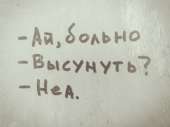 -Ай, больно
-Высунуть?
-Неа.